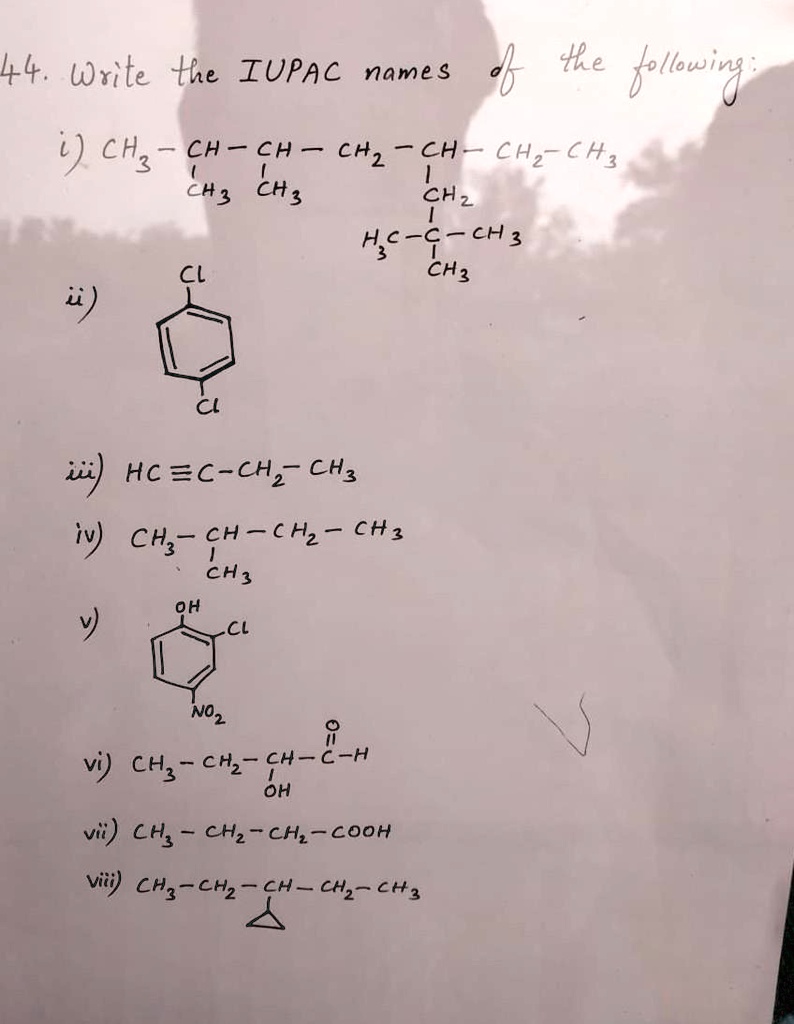 44. Write the IUPAC names of the following:
i) CH₃ – CH – CH – CH₂ – CH – CH₂ – CH₃
CH₃ CH₃ CH₂
H₃C – C – CH₃
CH₃
ii) Cl
Cl
iii) HC ≡ C – CH₂ – CH₃
iv) CH₃ – CH – CH₂ – CH₃
CH₃
v) OH
Cl
NO₂
O
vi) CH₃ – CH₂ – CH – C – H
OH
vii) CH₃ – CH₂ – CH₂ – COOH
viii) CH₃ – CH₂ – CH – CH₂ – CH₃